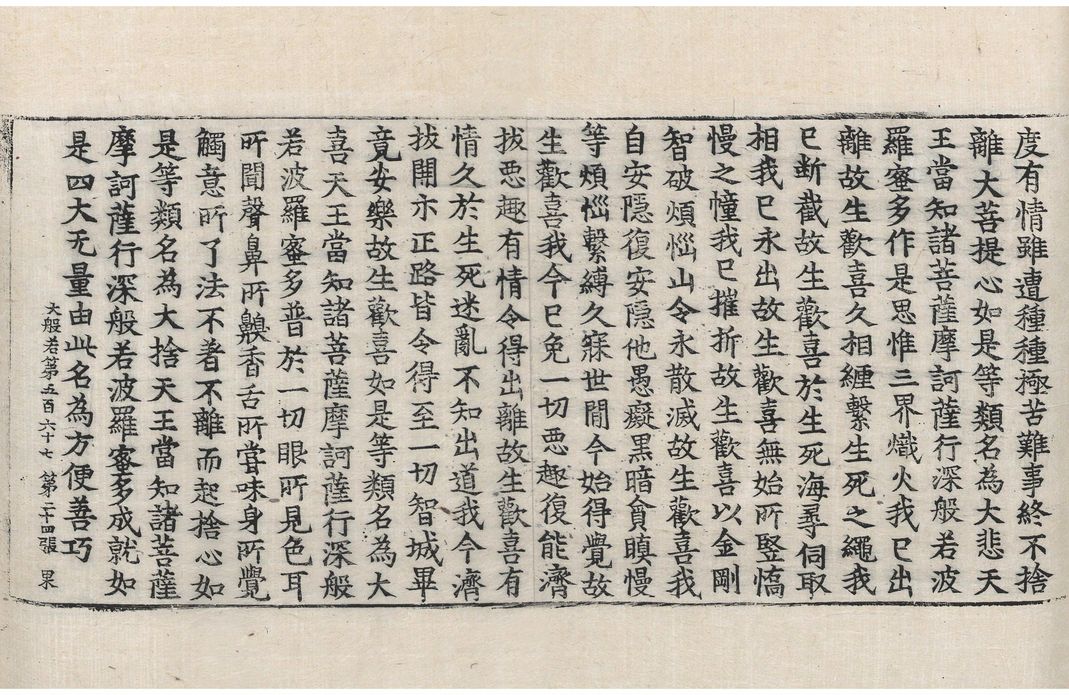 度有情雖遭種種極苦難事終不捨
離大菩提心如是等類名為大悲天
王當知諸菩薩摩訶薩行深般若波
羅蜜多作是思惟三界熾火我已出
離故生歡喜久相纏繫生死之繩我
已斷截故生歡喜於生死海尋伺取
相我已永出故生歡喜無始所竪憍
慢之幢我已摧折故生歡喜以金剛
智破煩惱山令永散滅故生歡喜我
自安隱復安隱他愚癡黑暗貪瞋慢
等煩惱繫縛久寐世閒今始得覺故
生歡喜我今已免一切惡趣復能濟
拔惡趣有情令得出離故生歡喜有
情久於生死迷亂不知出道我今濟
拔開示正路皆令得至一切智城畢
竟安樂故生歡喜如是等類名為大
喜天王當知諸菩薩摩訶薩行深般
若波羅蜜多普於一切眼所見色耳
所聞聲鼻所齅香舌所甞味身所覺
觸意所了法不著不離而起捨心如
是等類名為大捨天王當知諸菩薩
摩訶薩行深般若波羅蜜多成就如
是四大无量由此名為方便善巧
大般若第五百六十七 第二十四張 果